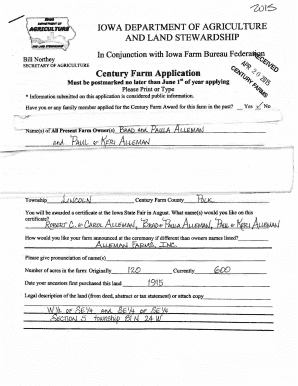 2015
IOWA DEPARTMENT OF AGRICULTURE
AND LAND STEWARDSHIP
IOWA
DEPARTMENT OF
AGRICULTURE
AND LAND STEWARDSHIP
Bill Northey
SECRETARY OF AGRICULTURE
In Conjunction with Iowa Farm Bureau Federation
RECEIVED
APR 20 2015
CENTURY FARMS
Century Farm Application
Must be postmarked no later than June 1st of year applying
Please Print or Type
* Information submitted on this application is considered public information.
Have you or any family member applied for the Century Farm Award for this farm in the past? Yes ✓ No
Name(s) of All Present Farm Owner(s) BRAD AND PAULA ALLEMAN
AND PAUL & KERI ALLEMAN
Township LINCOLN Century Farm County POLK
You will be awarded a certificate at the Iowa State Fair in August. What name(s) would you like on this
certificate?
ROBERT C. & CAROL ALLEMAN, BRAD & PAULA ALLEMAN, PAUL & KERI ALLEMAN
How would you like your farm announced at the ceremony if different than owners names listed?
ALLEMAN FARMS, INC.
Please give pronunciation of name(s)
Number of acres in the farm: Originally 120 Currently 600
Date your ancestors first purchased this land 1915
Legal description of the land (from deed, abstract or tax statement) or attach copy
W1/2 OF SE1/4 AND SE1/4 OF SE1/4
SECTION 5 TOWNSHIP 81 N 24 W